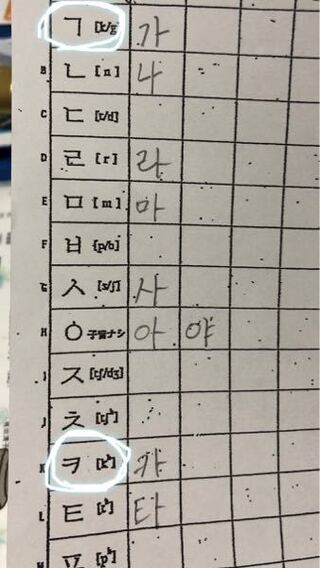 ㄱ [k/g] 가
B ㄴ [n] 나
C ㄷ [t/d]
D ㄹ [r] 라
E ㅁ [m] 마
F ㅂ [p/b]
G ㅅ [s/ʃ] 사
H ㅇ 子音ナシ 아 야
I ㅈ [tʃ/dʒ]
J ㅊ [tʃʰ]
K ㅋ [kʰ] 카
L ㅌ [tʰ] 타
M ㅍ [pʰ]